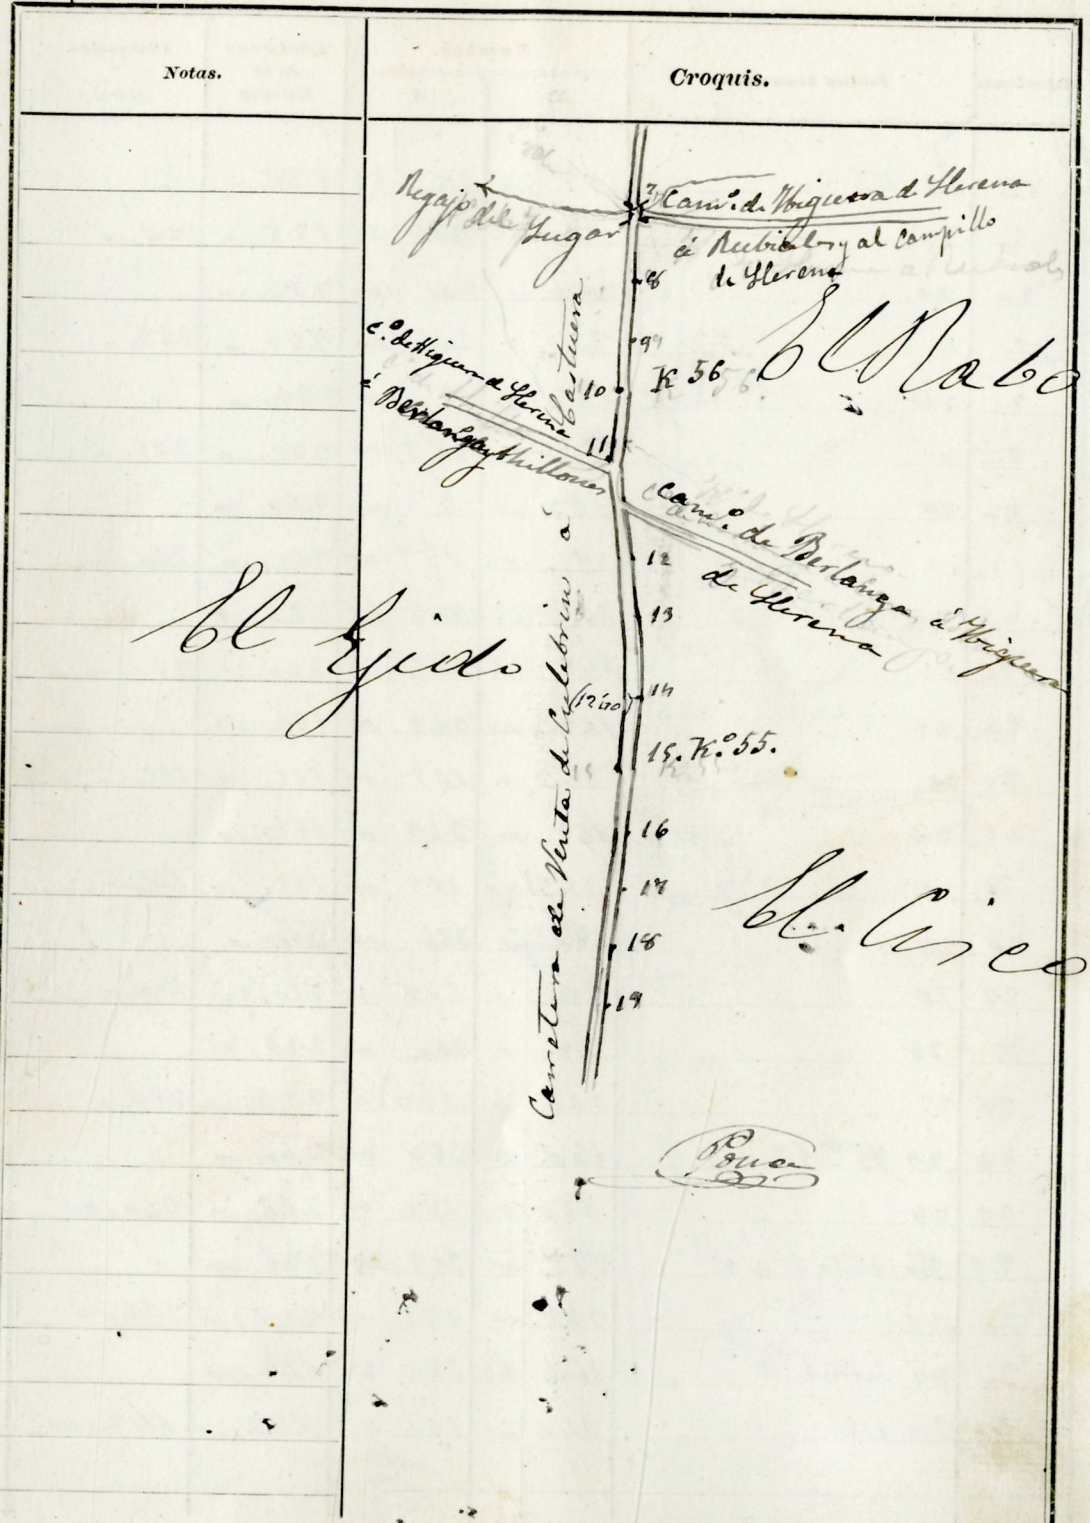 Notas.
Croquis.
Regajo del Lugar
7
Cam.º de Higuera de Llerena
á Rubiales y al Campillo
de Llerena
8
9
El Nabo
10
K 56
c.º de Higuera de Llerena
á Berlanga y Ahillones
11
cam.º de Berlanga á Higuera
de Llerena
12
13
El Ejido
14
15. K.º 55.
16
17
El Cisco
18
19
Carretera de Venta de Culebrin á Castuera